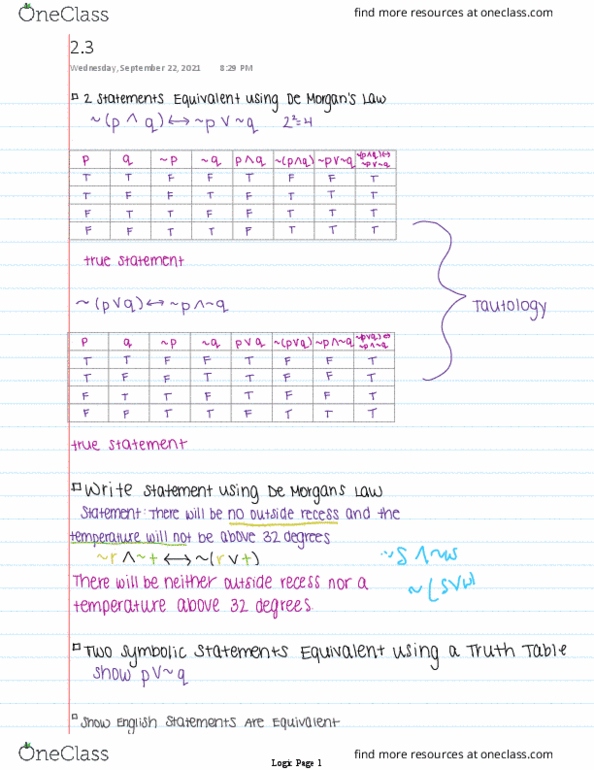 OneClass find more resources at oneclass.com
2.3
Wednesday, September 22, 2021 8:29 PM
2 Statements Equivalent using De Morgan's Law
~(p ∧ q) ↔ ~p ∨ ~q 2²=4
p q ~p ~q p∧q ~(p∧q) ~p∨~q ~(p∧q)↔~p∨~q
T T F F T F F T
T F F T F T T T
F T T F F T T T
F F T T F T T T
true statement
Tautology
~(p∨q) ↔ ~p∧~q
p q ~p ~q p∨q ~(p∨q) ~p∧~q ~(p∨q)↔~p∧~q
T T F F T F F T
T F F T T F F T
F T T F T F F T
F F T T F T T T
true statement
Write statement using De Morgans Law
Statement: There will be no outside recess and the
temperature will not be above 32 degrees
~r ∧ ~t ↔ ~(r ∨ t)
~S ∧ ~w
~(S∨w)
There will be neither outside recess nor a
temperature above 32 degrees.
Two Symbolic Statements Equivalent using a Truth Table
show p∨~q
Show English Statements Are Equivalent
OneClass find more resources at oneclass.com
Logic Page 1